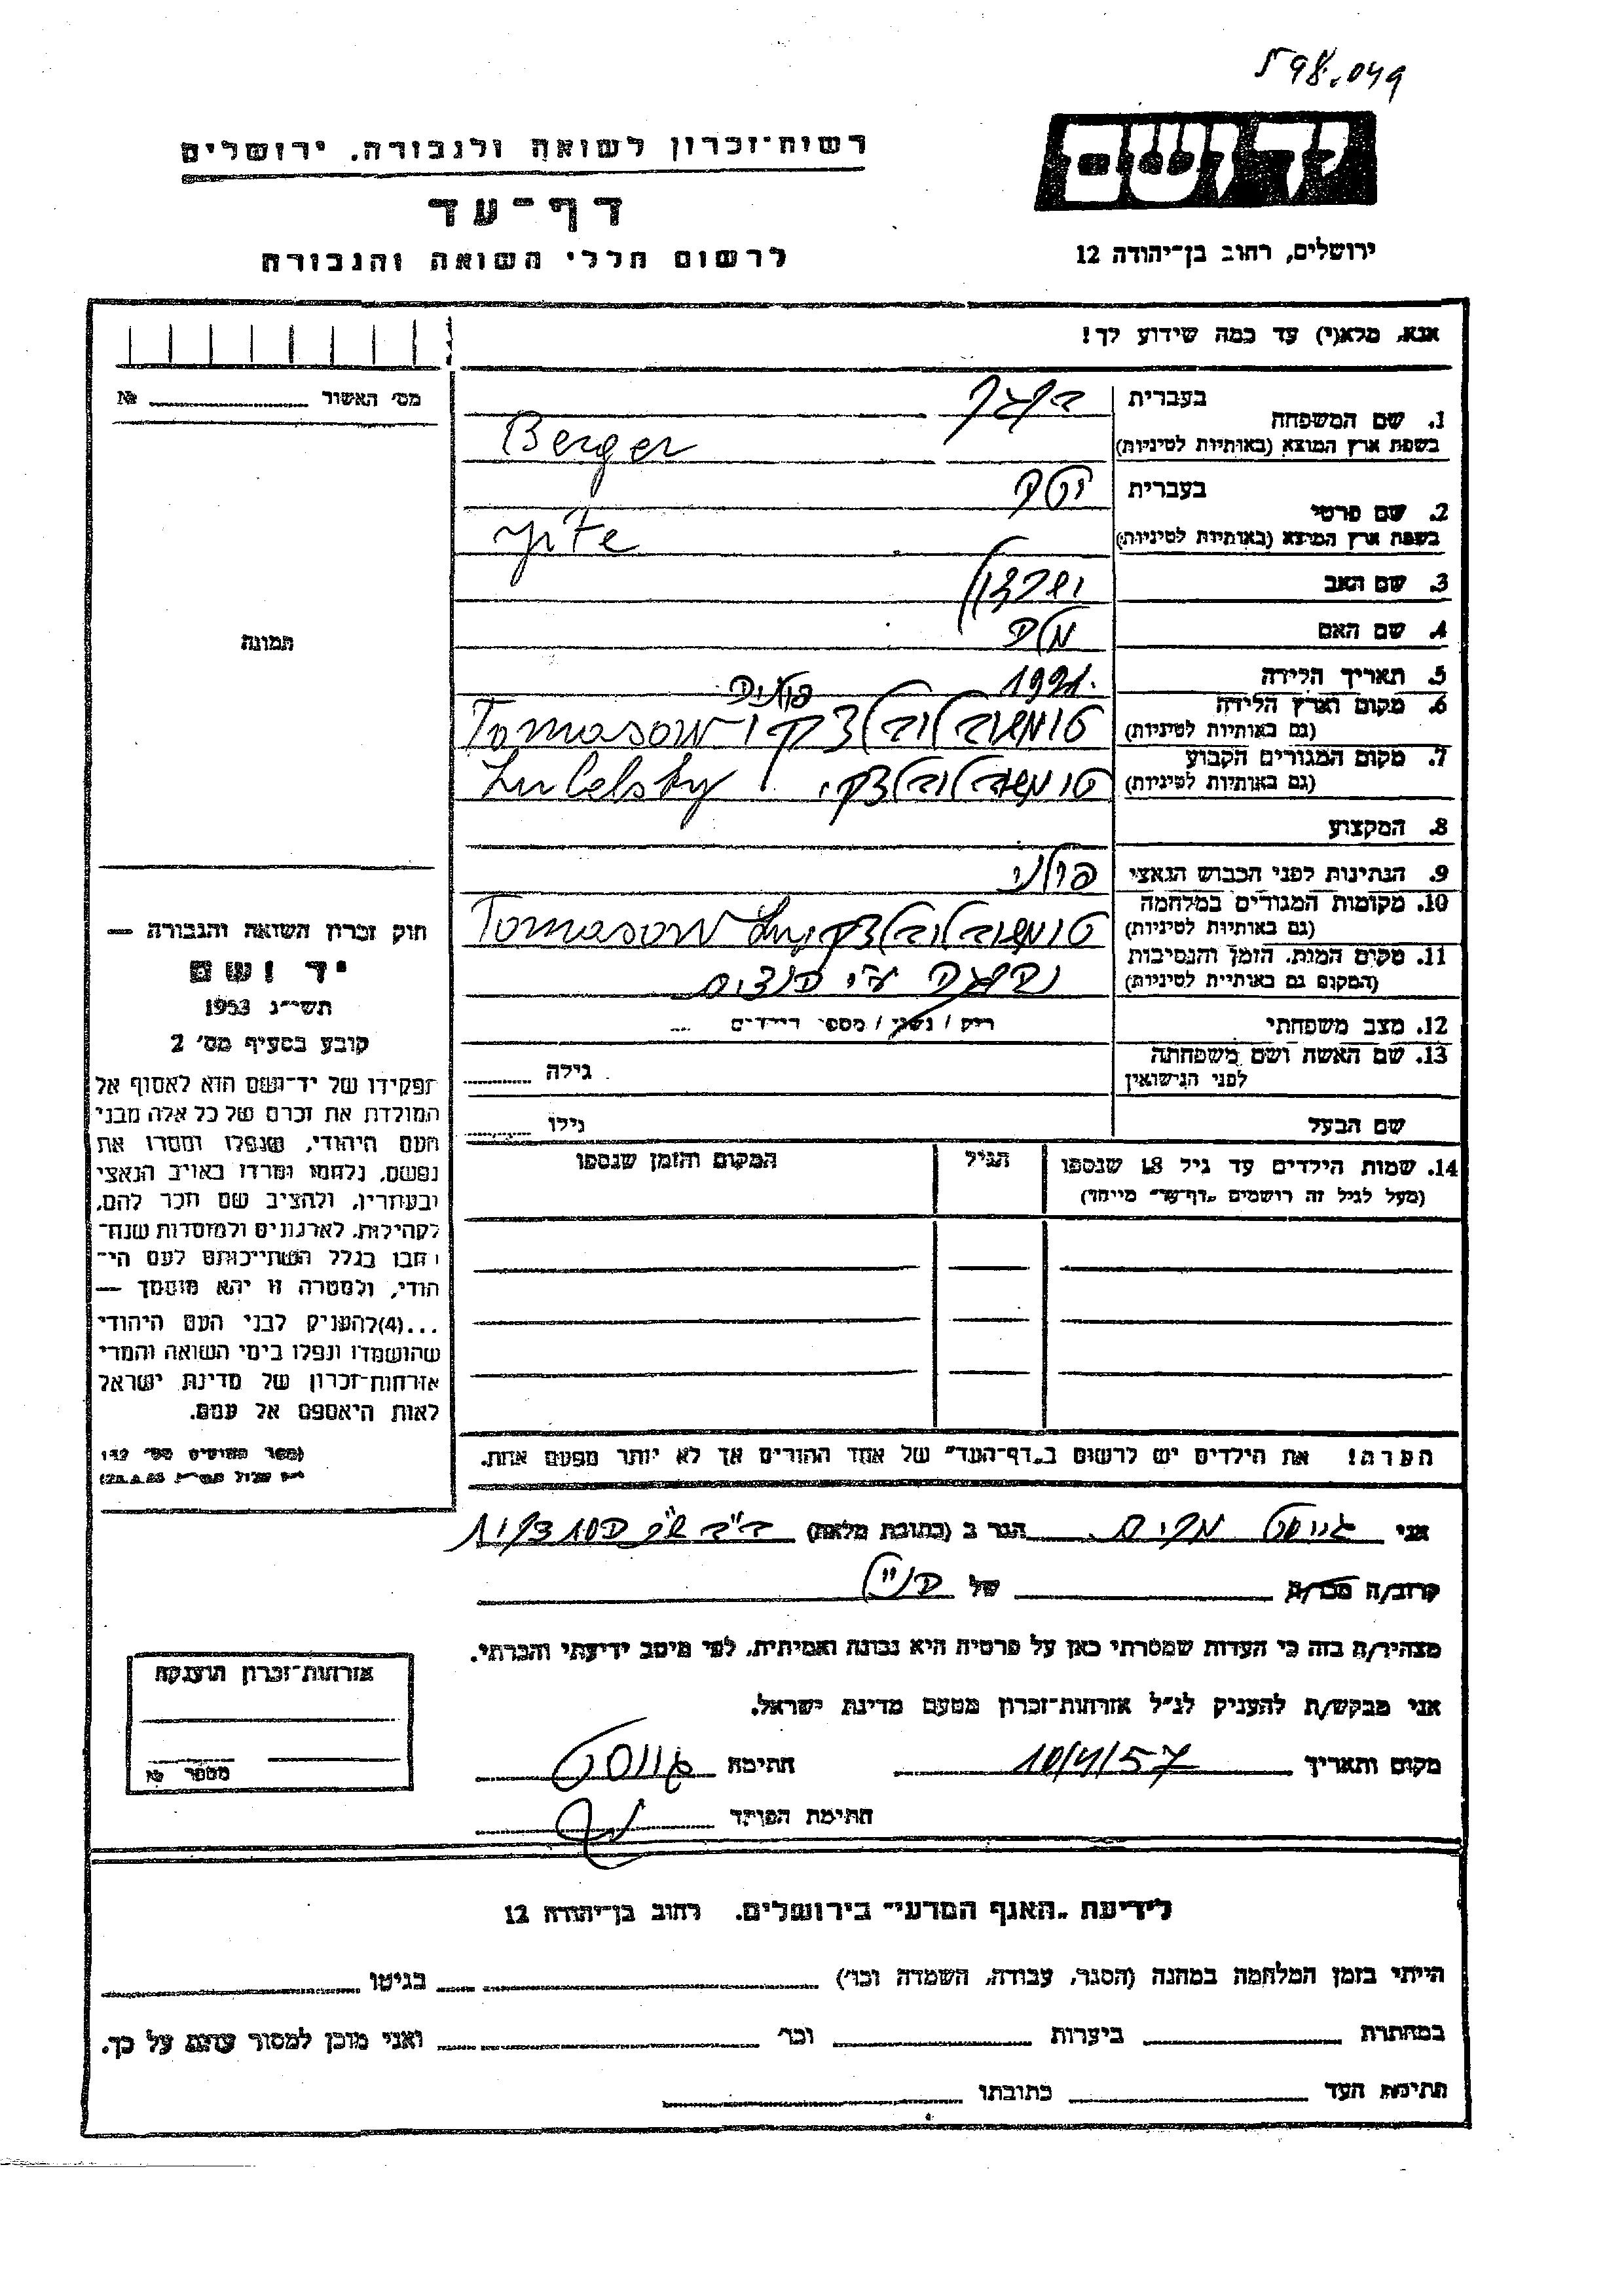 598.049
רשות-זכרון לשואה ולגבורה. ירושלים
דף-עד
לרשום חללי השואה והגבורה
יד ושם
ירושלים, רחוב בן-יהודה 12
אנא, מלא(י) עד כמה שידוע לך!
מס׳ האשור №
1. שם המשפחה
בעברית ברגר
בשפת ארץ המוצא (באותיות לטיניות) Berger
2. שם פרטי
בעברית יטה
בשפת ארץ המוצא (באותיות לטיניות) yite
3. שם האב
4. שם האם
5. תאריך הלידה 1921.
6. מקום וארץ הלידה
(גם באותיות לטיניות) טומשוב לובלצקי Tomasow
פולניה
7. מקום המגורים הקבוע
(גם באותיות לטיניות) טומשוב לובלצקי. Lubelsky
8. המקצוע
9. הנתינות לפני הכבוש הנאצי פולני
10. מקומות המגורים במלחמה
(גם באותיות לטיניות) טומשוב לובלצקי Tomasow
11. מקום המות, הזמן והנסיבות
(המקום גם באותיות לטיניות) נהרגה ע״י
12. מצב משפחתי רוק / נשוי / מספר הילדים
13. שם האשה ושם משפחתה
לפני הנישואין גילה
שם הבעל גילו
14. שמות הילדים עד גיל 18 שנספו הגיל המקום והזמן שנספו
(מעל לגיל זה רושמים „דף-עד״ מיוחד)
תמונה
חוק זכרון השואה והגבורה —
יד ושם
תשי״ג 1953
קובע בסעיף מס׳ 2
תפקידו של יד-ושם הוא לאסוף אל
המולדת את זכרם של כל אלה מבני
העם היהודי, שנפלו ומסרו את
נפשם, נלחמו ומרדו באויב הנאצי
ובעוזריו, ולהציב שם וזכר להם,
לקהילות, לארגונים ולמוסדות שנח-
רבו בגלל השתייכותם לעם הי-
הודי, ולמטרה זו יהא מוסמך —
...(4)להעניק לבני העם היהודי
שהושמדו ונפלו בימי השואה והמרי
אזרחות-זכרון של מדינת ישראל
לאות היאספם אל עמם.
(ספר החוקים מס׳ 132
הערה! את הילדים יש לרשום ב„דף-העד״ של אחד ההורים אך לא יותר מפעם אחת.
אני מרים הגר ב (כתובת מלאה)
קרוב/ה מכר/ה של הנ״ל
מצהיר/ה בזה כי העדות שמסרתי כאן על פרטיה היא נכונה ואמיתית, לפי מיטב ידיעתי והכרתי.
אני מבקש/ת להעניק לנ״ל אזרחות-זכרון מטעם מדינת ישראל.
מקום ותאריך 10/4/57 חתימה
חתימת הפוקד
אזרחות-זכרון הוענקה
מספר №
לידיעת „האגף המדעי״ בירושלים. רחוב בן-יהודה 12
הייתי בזמן המלחמה במחנה (הסגר, עבודה, השמדה וכו׳) בגיטו
במחתרת ביערות וכו׳ ואני מוכן למסור עדות על כך.
חתימת העד כתובתו